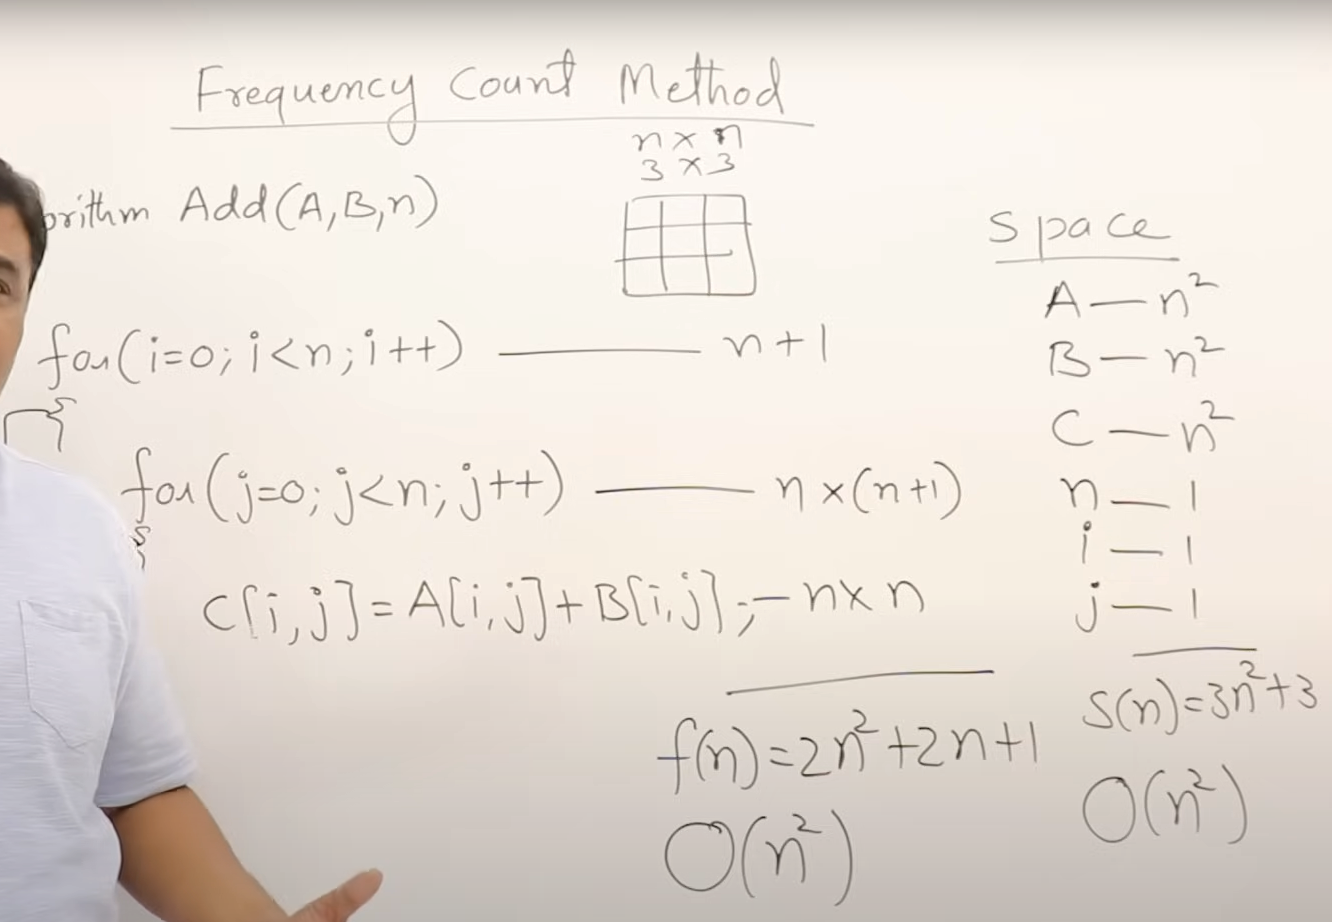 Frequency Count Method
n × n
3 × 3
orithm Add(A,B,n)
for(i=0; i<n; i++) —— n+1
{
for(j=0; j<n; j++) —— n×(n+1)
{
C[i,j] = A[i,j]+B[i,j]; — n×n
f(n)=2n²+2n+1
O(n²)
Space
A — n²
B — n²
C — n²
n — 1
i — 1
j — 1
S(n)=3n²+3
O(n²)